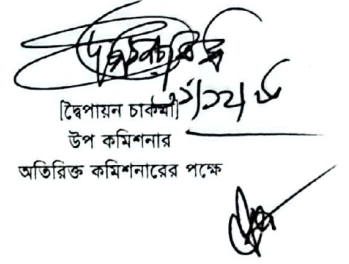 [দ্বৈপায়ন চাকমা]
উপ কমিশনার
অতিরিক্ত কমিশনারের পক্ষে